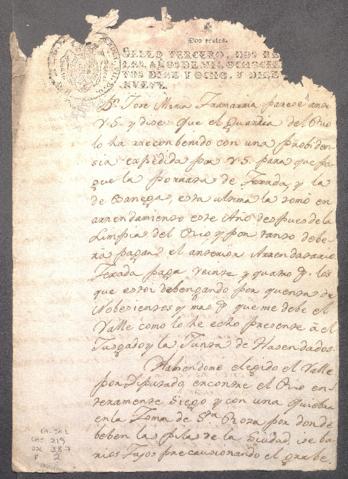 Dos reales.
SELLO TERCERO, DOS RE
LES, AÑOS DE MIL OCHOCIEN
TOS DIEZ Y OCHO, Y DIEZ
NUEVE
Dn. Jose Maria parese ante
V.S. y dise que el Guardia del Rio
lo ha rreconbenido con una probiden
sia expedida por V.S. para que pa
gue la porrata de Texada, y la
de esta ultima la tomó en
arrendamiento este Año despues de la
Limpia del Rio y por tanto debe
ra pagar el anterior Arrendatario
Texada paga veinte y quatro p. los
que estoi debengando por quenta de
Nobesientos y mas p. que me debe el
Valle como lo he echo presente á el
Jusgado y la Junta de Hasendados.
Haviendome elegido el Valle
por Diputado, encontre el Rio en
teramente Siego y con una quiebra
en la Toma de Sta. Rosa por don de
beben la Pila de la Siudad, se ba
rios Tajos precaucionando el grabe